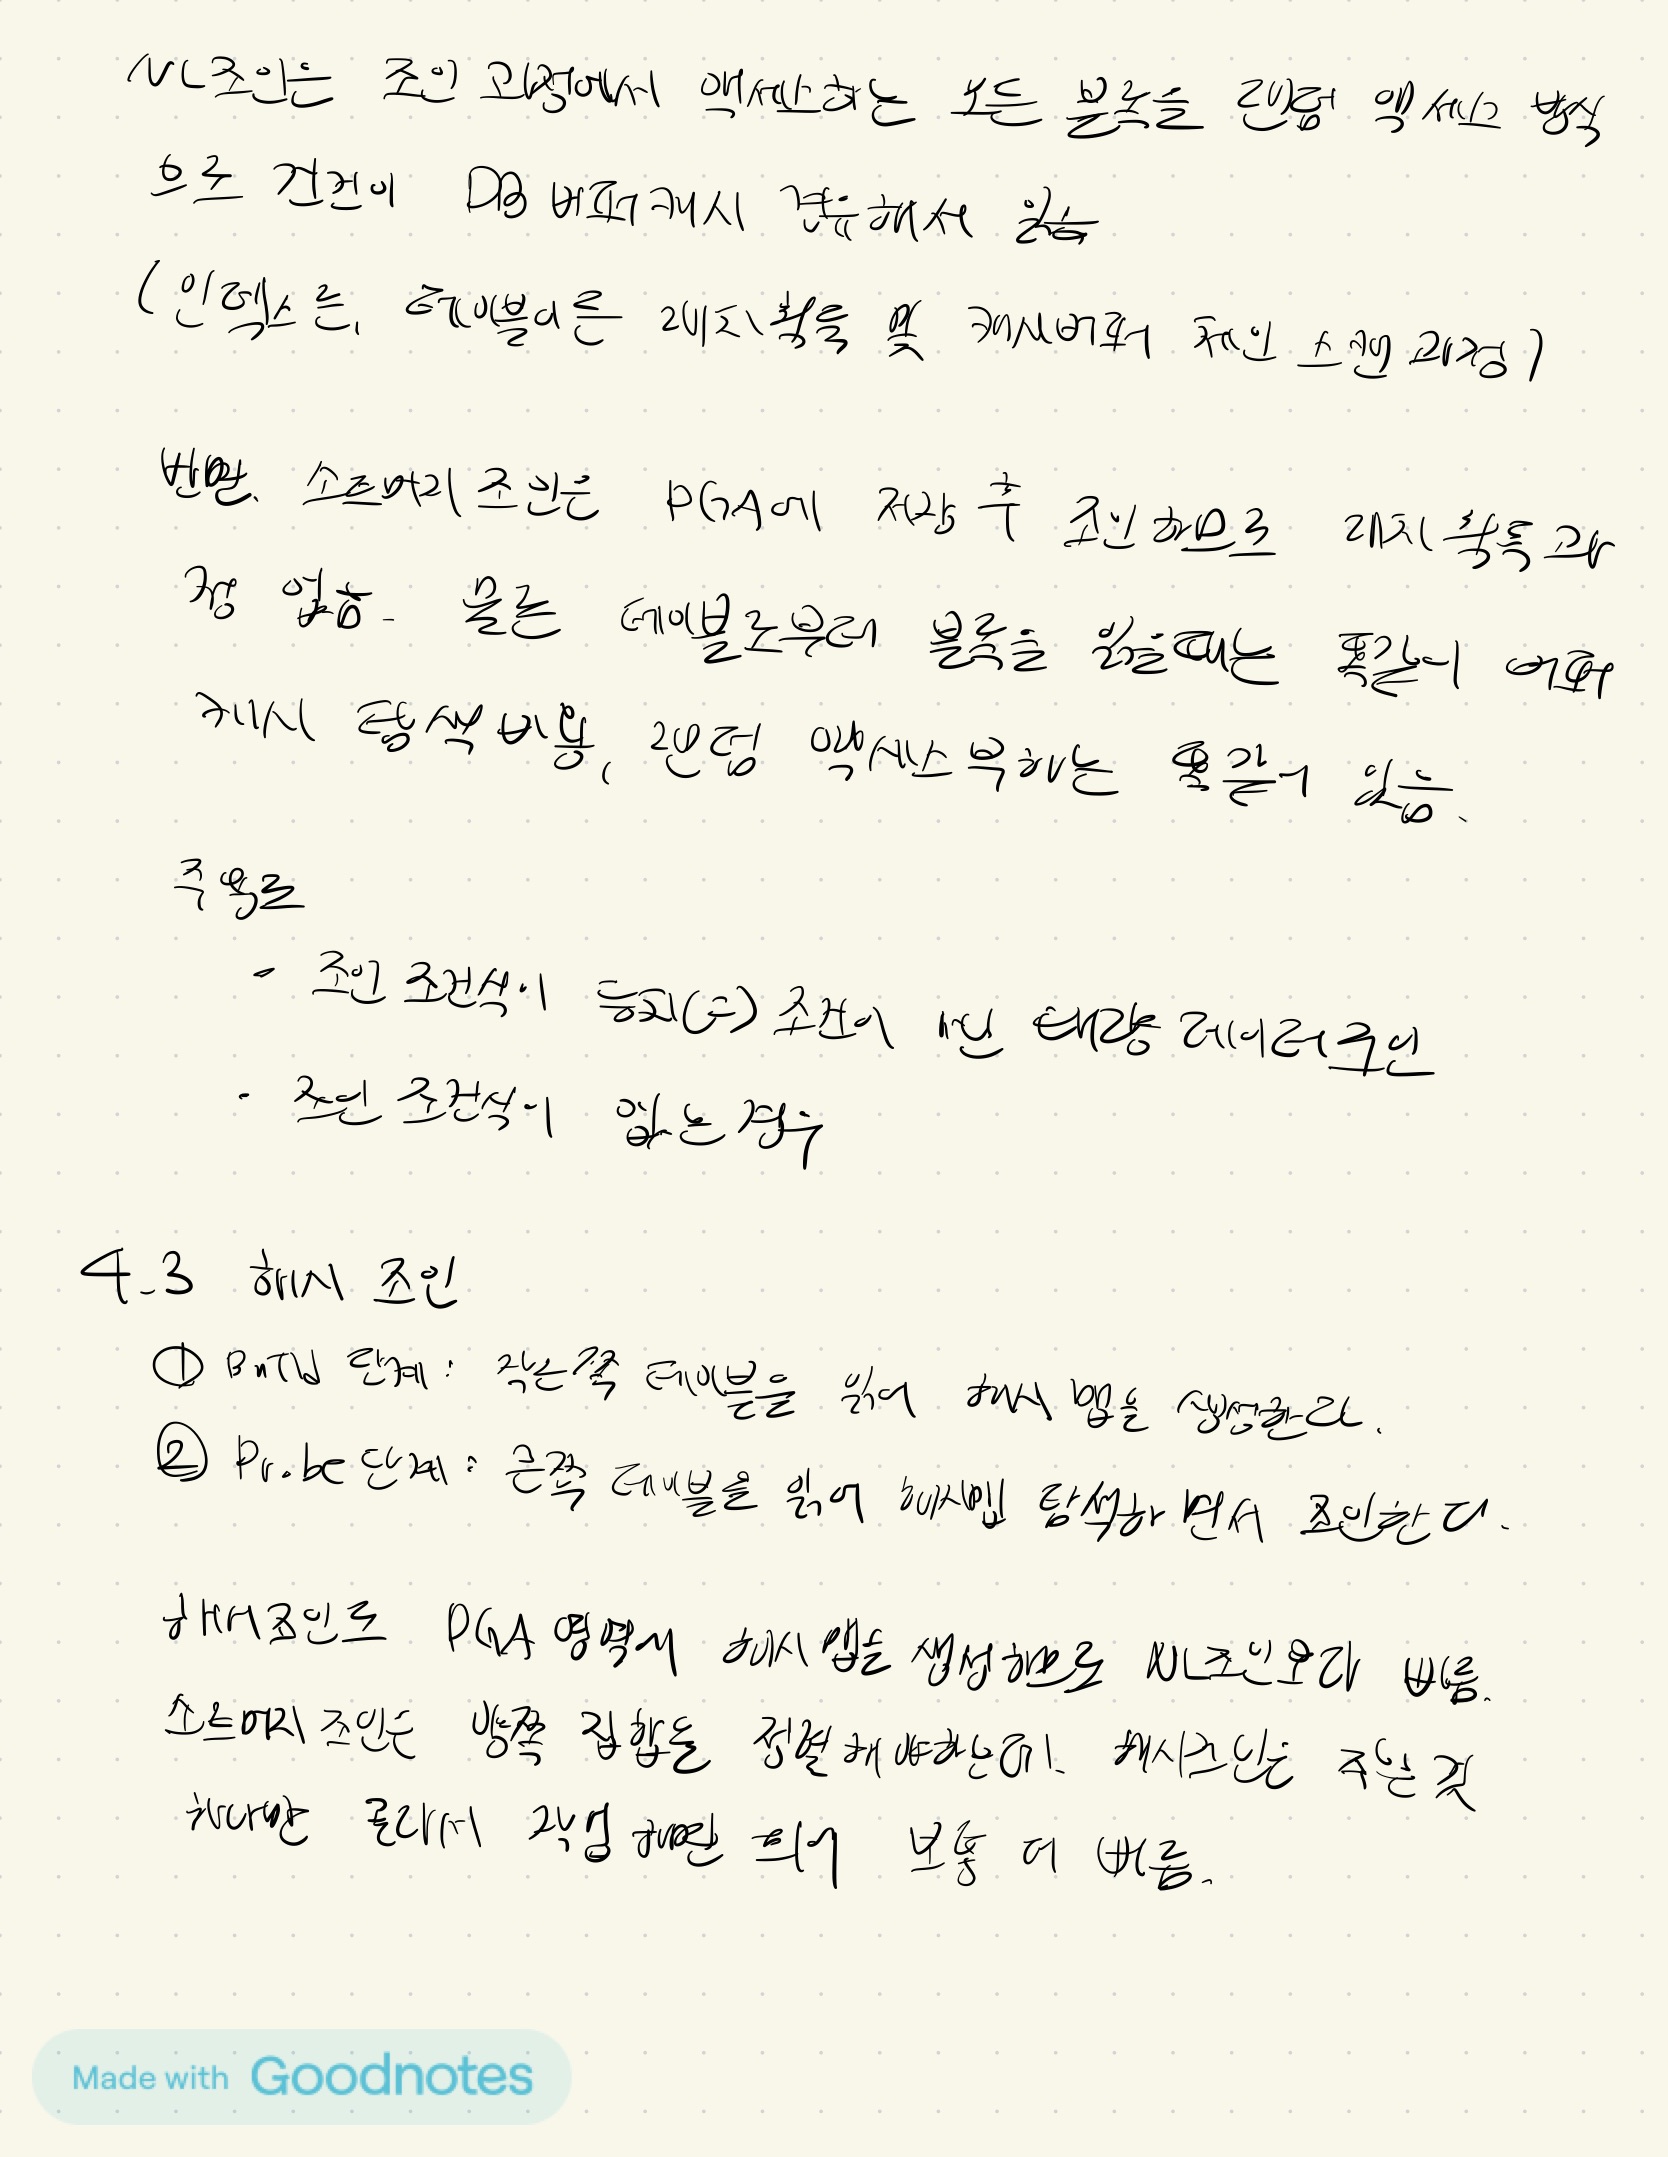 NL조인은 조인 과정에서 액세스하는 모든 블록을 랜덤 액세스 방식
으로 건건이 DB 버퍼캐시 경유해서 읽음
(인덱스든, 테이블이든 래치획득 및 캐시버퍼 체인 스캔 과정)
반면, 소트머지 조인은 PGA에 저장 후 조인하므로 래치 획득 과
정 없음. 물론 테이블로부터 블록을 읽을때는 똑같이 버퍼
캐시 탐색 비용, 랜덤 액세스 부하는 똑같이 있음.
주용도
- 조인 조건식이 등치(=) 조건이 아닌 대량 데이터 조인
- 조인 조건식이 없는 경우
4.3 해시 조인
① Build 단계: 작은쪽 테이블을 읽어 해시 맵을 생성한다.
② Probe 단계: 큰쪽 테이블을 읽어 해시맵 탐색하면서 조인한다.
해시조인도 PGA 영역서 해시 맵을 생성하므로 NL조인보다 빠름.
소트머지 조인은 양쪽 집합을 정렬해야하는데, 해시조인은 작은 것
하나만 골라서 작업해면 되어 보통 더 빠름.
Made with Goodnotes